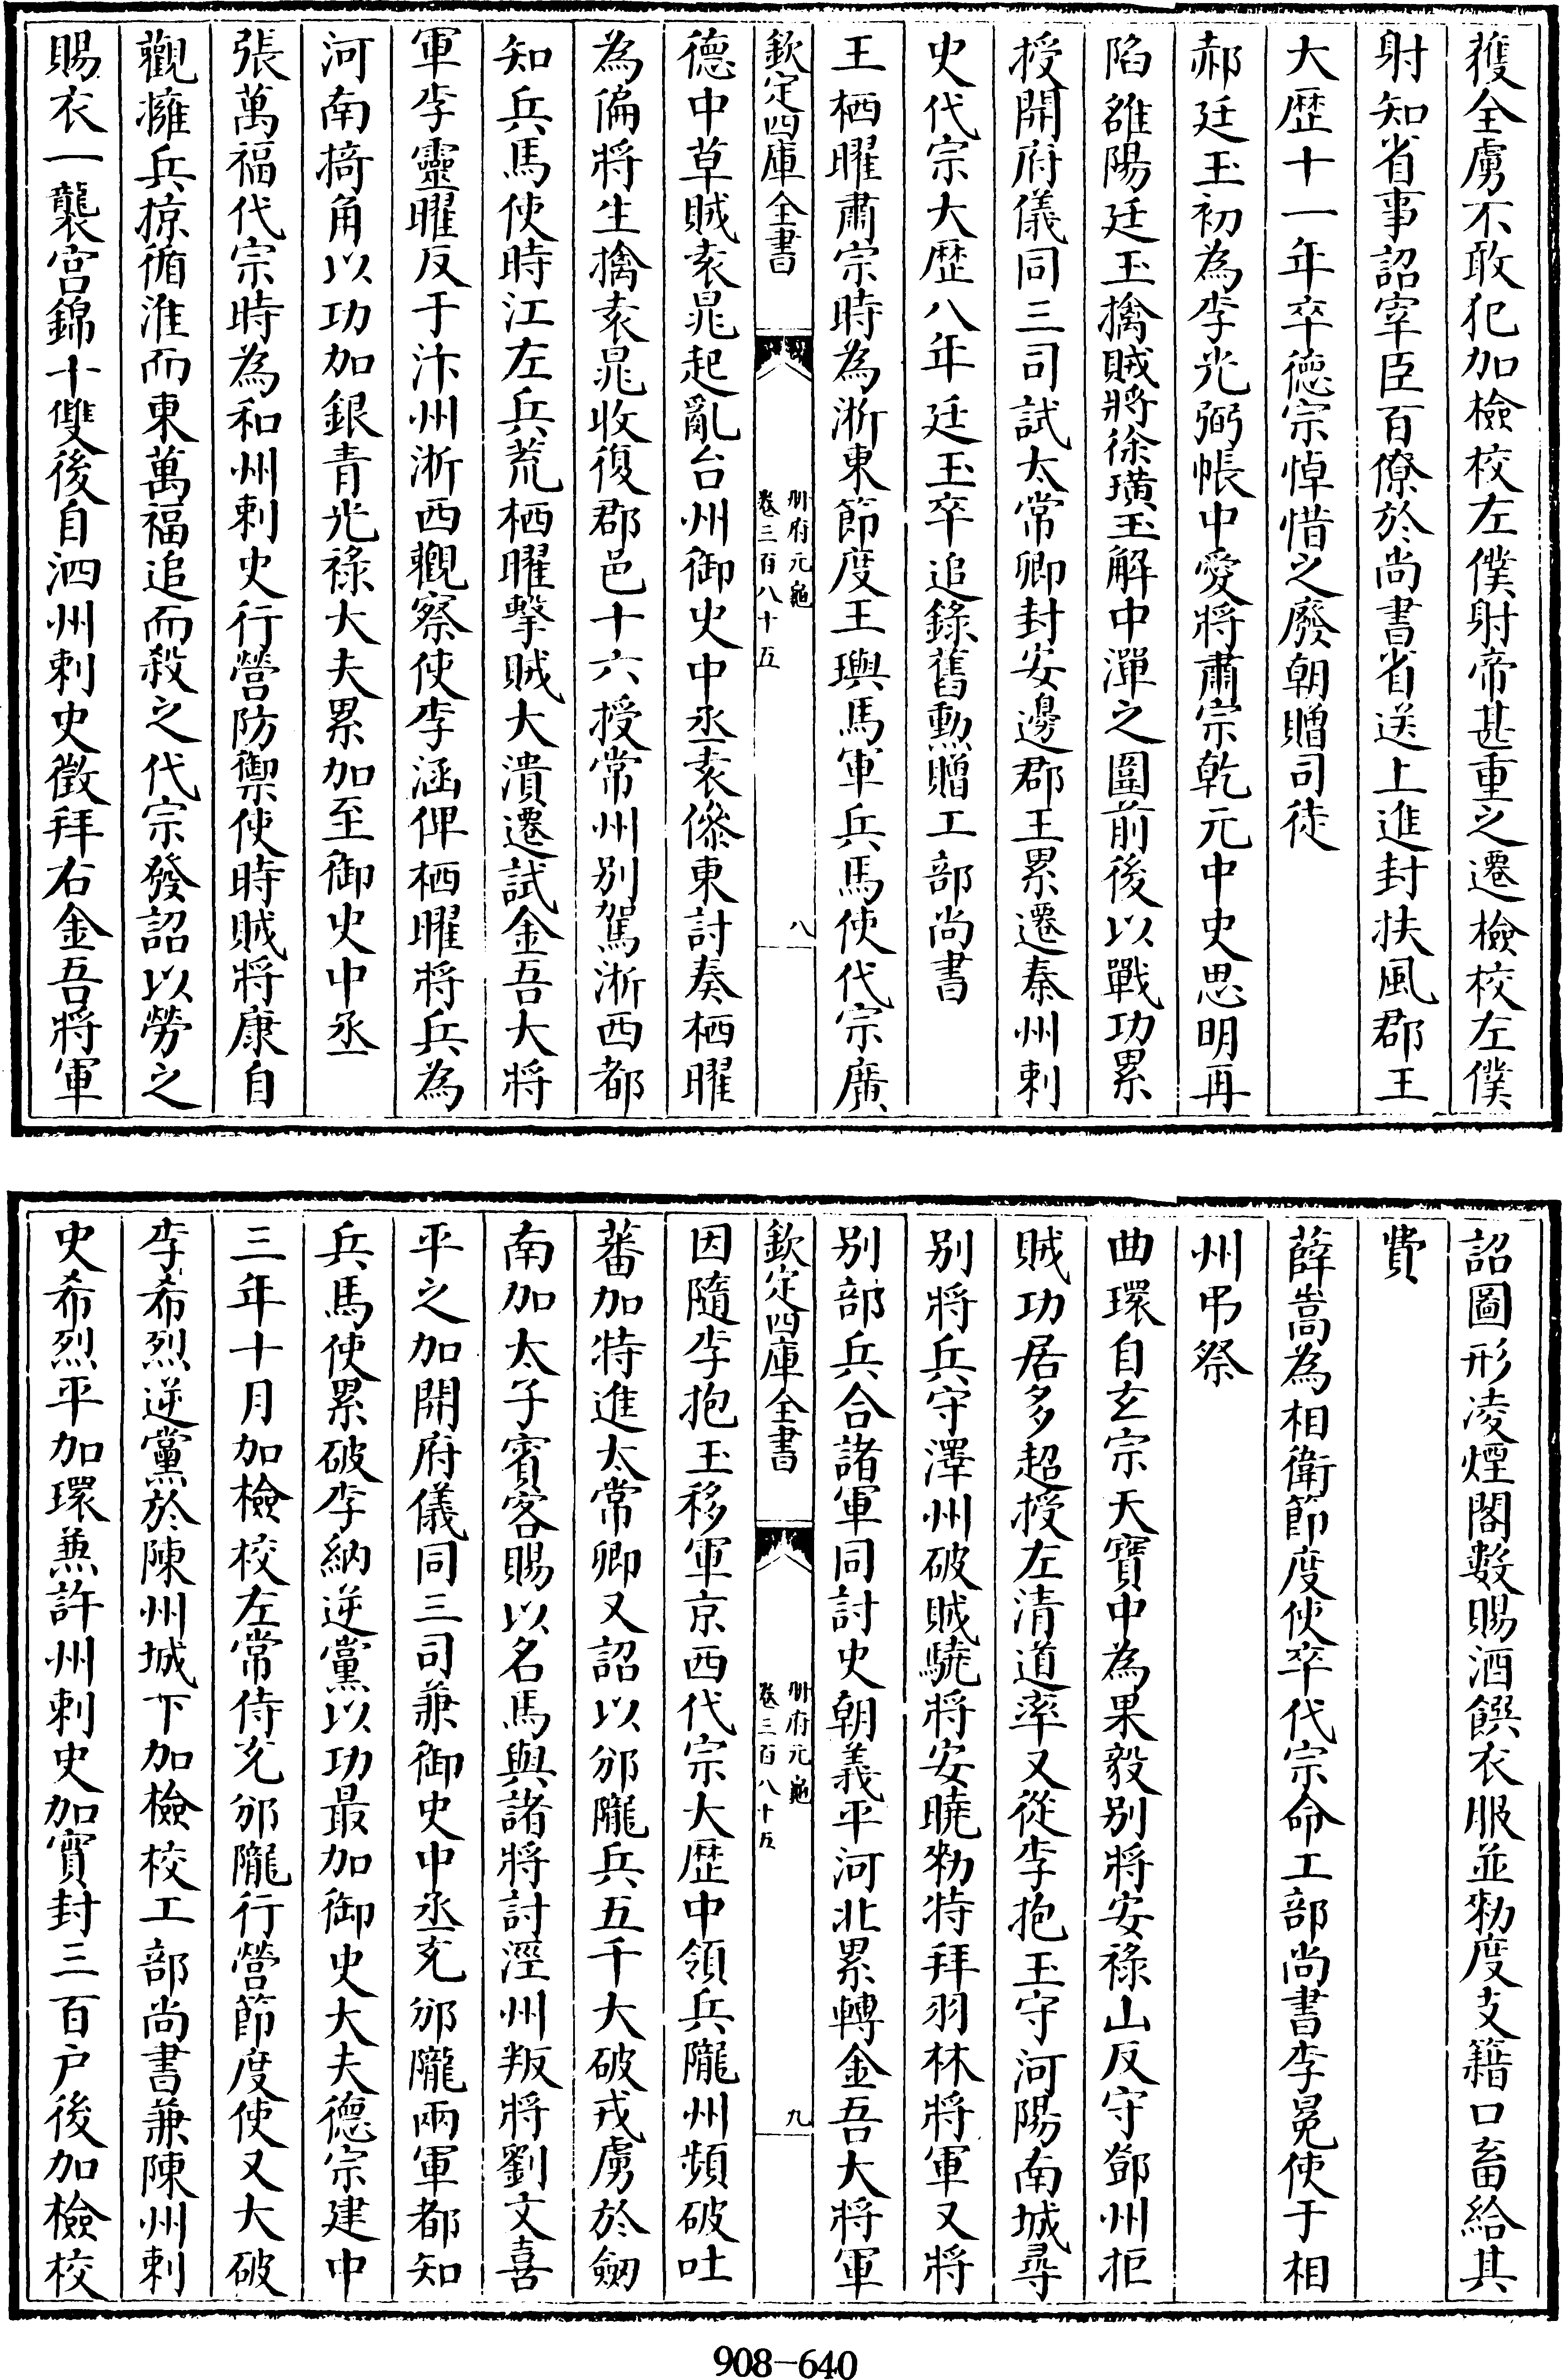 獲全虜不敢犯加檢校左僕射帝甚重之遷檢校左僕
射知省事詔宰臣百僚於尚書省送上進封扶風郡王
大歷十一年卒德宗悼惜之廢朝贈司徒
郝廷玉初為李光弼帳中愛將肅宗乾元中史思明再
陷雒陽廷玉擒賊將徐璜玉解中潬之圍前後以戰功累
授開府儀同三司試太常卿封安邊郡王累遷秦州刺
史代宗大歷八年廷玉卒追錄舊勲贈工部尚書
王栖曜肅宗時為浙東節度王璵馬軍兵馬使代宗廣
欽定四庫全書
册府元龜
卷三百八十五
八
德中草賊袁晁起亂台州御史中丞袁傪東討奏栖曜
為偏將生擒袁晁收復郡邑十六授常州别駕浙西都
知兵馬使時江左兵荒栖曜擊賊大潰遷試金吾大將
軍李靈曜反于汴州浙西觀察使李涵俾栖曜將兵為
河南掎角以功加銀青光祿大夫累加至御史中丞
張萬福代宗時為和州刺史行營防禦使時賊將康自
觀擁兵掠循淮而東萬福追而殺之代宗發詔以勞之
賜衣一襲宫錦十雙後自泗州刺史徵拜右金吾將軍
詔圖形凌煙閣數賜酒饌衣服並勑度支籍口畜給其
費
薛嵩為相衛節度使卒代宗命工部尚書李冕使于相
州弔祭
曲環自玄宗天寶中為果毅别將安祿山反守鄧州拒
賊功居多超授左清道率又從李抱玉守河陽南城尋
别將兵守澤州破賊驍將安曉勑特拜羽林將軍又將
别部兵合諸軍同討史朝義平河北累轉金吾大將軍
欽定四庫全書
册府元龜
卷三百八十五
九
因隨李抱玉移軍京西代宗大歷中領兵隴州頻破吐
蕃加特進太常卿又詔以邠隴兵五千大破戎虜於劒
南加太子賓客賜以名馬與諸將討涇州叛將劉文喜
平之加開府儀同三司兼御史中丞充邠隴兩軍都知
兵馬使累破李納逆黨以功最加御史大夫德宗建中
三年十月加檢校左常侍充邠隴行營節度使又大破
李希烈逆黨於陳州城下加檢校工部尚書兼陳州刺
史希烈平加環兼許州刺史加實封三百户後加檢校
908-640